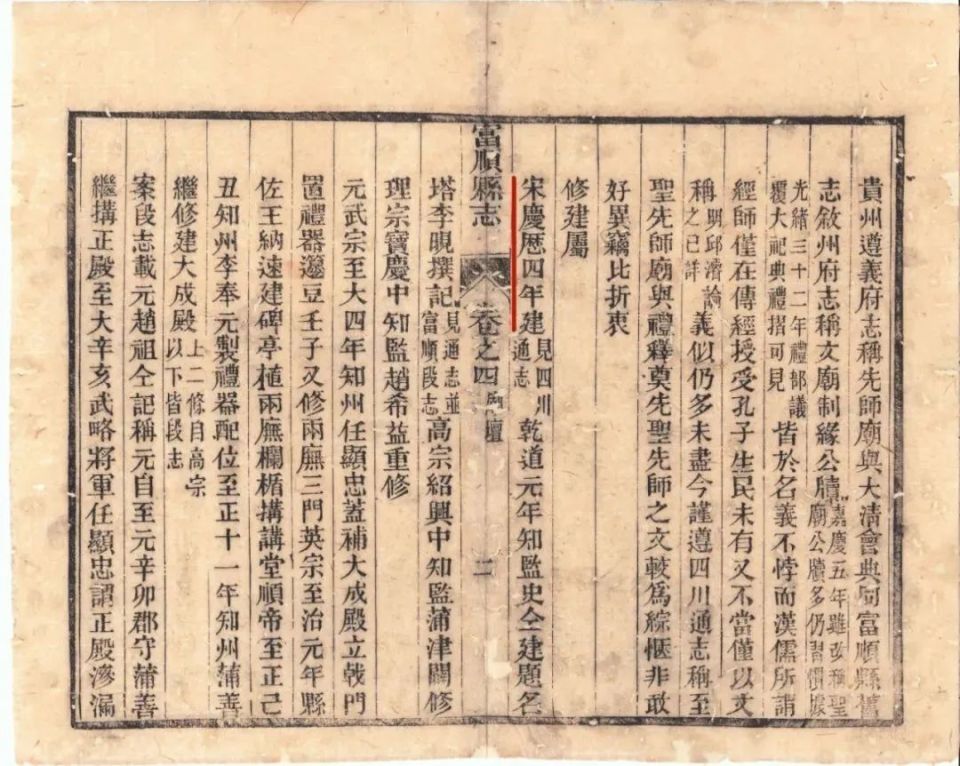 貴州遵義府志稱先師廟與大清會典同富順縣舊
志敘州府志稱文廟制緣公牘嘉慶五年雖改稱聖廟公牘多仍習慣據
光緒三十二年禮部議覆大祀典禮摺可見皆於名義不悖而漢儒所謂
經師僅在傳經授受孔子生民未有又不當僅以文
稱明邱濬論之已詳義似仍多未盡今謹遵四川通志稱至
聖先師廟與禮釋奠先聖先師之文較爲綜愜非敢
好異竊比折衷
修建屬
宋慶歷四年建見四川通志乾道元年知監史仝建題名
富順縣志 卷之四 壇 二
塔李晛撰記見通志並富順段志高宗紹興中知監蒲津闢修
理宗寶慶中知監趙希益重修
元武宗至大四年知州任顯忠蓋補大成殿立戟門
置禮器籩豆壬子又修兩廡三門英宗至治元年縣
佐王納速建碑亭植兩廡欄楯搆講堂順帝至正己
丑知州李奉元製禮器配位至正十一年知州蒲善
繼修建大成殿上二條自高宗以下皆段志
案段志載元趙祖仝記稱元自至元辛卯郡守蒲善
繼搆正殿至大辛亥武略將軍任顯忠謂正殿滲漏